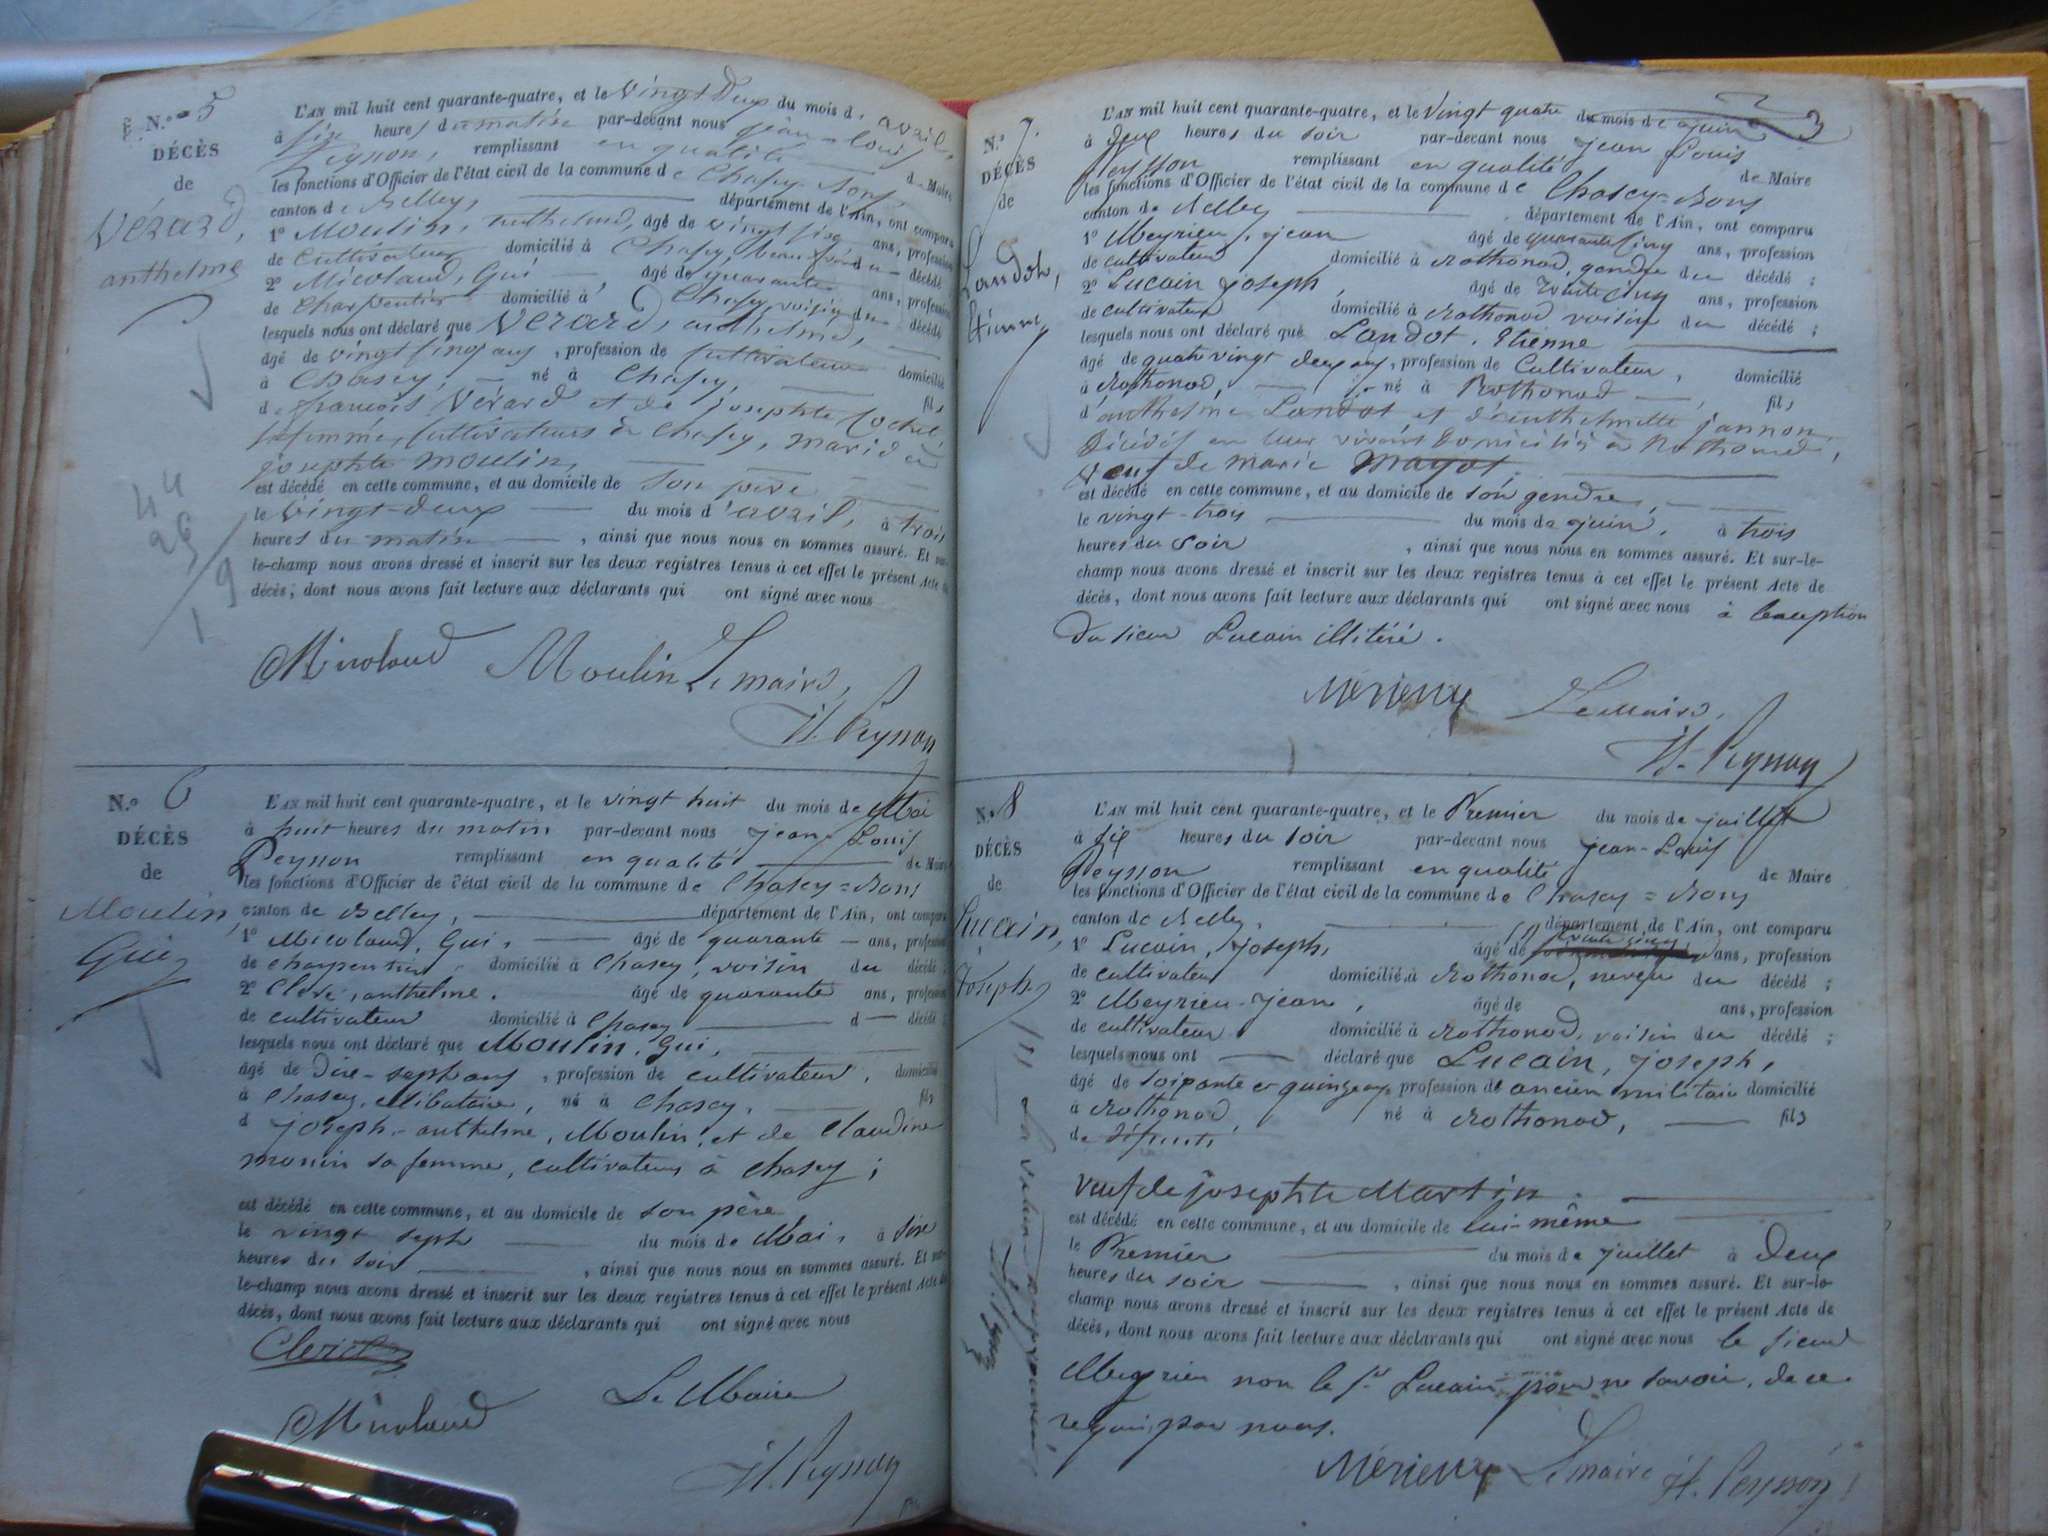 N.° 5
DÉCÈS
de
Vérard,
anthelme
L'AN mil huit cent quarante-quatre, et le vingt Deux du mois d'avril,
à six heures du matin par-devant nous jean-louis
Peysson, remplissant en qualité de Maire
les fonctions d'Officier de l'état civil de la commune de Chasey-Bons,
canton de Belley, département de l'Ain, ont comparu
1° Moulin, anthelme, âgé de vingt six ans, profession
de cultivateur domicilié à Chasey, beau-frère du décédé
2° Micoland, Gui, âgé de quarante ans, profession
de charpentier domicilié à Chasey, voisin du décédé
lesquels nous ont déclaré que Vérard, anthelme,
âgé de vingt cinq ans, profession de cultivateur domicilié
à Chasey, né à Chasey, fils
de françois Vérard et de josephte
sa femme, cultivateurs à Chasey, marid à
josephte Moulin,
est décédé en cette commune, et au domicile de son père
le vingt-deux du mois d'avril, à trois
heures du matin, ainsi que nous nous en sommes assuré. Et sur-
le-champ nous avons dressé et inscrit sur les deux registres tenus à cet effet le présent Acte de
décès, dont nous avons fait lecture aux déclarants qui ont signé avec nous
44
26
19
Micoland Moulin Le maire,
Jl. Peysson
N.° 6
DÉCÈS
de
Moulin,
Gui
L'AN mil huit cent quarante-quatre, et le vingt huit du mois de Mai
à huit heures du matin par-devant nous jean-Louis
Peysson remplissant en qualité de Maire
les fonctions d'Officier de l'état civil de la commune de Chasey=Bons
canton de Belley, département de l'Ain, ont comparu
1° Micoland, Gui, âgé de quarante ans, profession
de charpentier domicilié à Chasey, voisin du décédé;
2° Clerc, anthelme. âgé de quarante ans, profession
de cultivateur domicilié à Chasey d décédé;
lesquels nous ont déclaré que Moulin, Gui,
âgé de dixe-sept ans, profession de cultivateur, domicilié
à Chasey, célibataire, né à Chasey, fils
d joseph-anthelme, Moulin, et de Claudine
monin sa femme, cultivateurs à Chasey;
est décédé en cette commune, et au domicile de son père
le vingt sept du mois de Mai, à sixe
heures du soir, ainsi que nous nous en sommes assuré. Et sur-
le-champ nous avons dressé et inscrit sur les deux registres tenus à cet effet le présent Acte de
décès, dont nous avons fait lecture aux déclarants qui ont signé avec nous
Clerc
Micoland Le Maire
Jl. Peysson
N.° 7.
DÉCÈS
de
Landot,
Etienne
L'AN mil huit cent quarante-quatre, et le vingt quatre du mois de juin
à deux heures du soir par-devant nous jean Louis
Peysson remplissant en qualité de Maire
les fonctions d'Officier de l'état civil de la commune de Chasey=Bons
canton de Belley département de l'Ain, ont comparu
1° Meyrieu, jean âgé de quarante cinq ans, profession
de cultivateur domicilié à Rothonod, gendre du décédé;
2° Lucain joseph, âgé de trente cinq ans, profession
de cultivateur domicilié à Rothonod voisin du décédé;
lesquels nous ont déclaré que Landot. Etienne
âgé de quatre vingt deux ans, profession de Cultivateur, domicilié
à Rothonod, né à Rothonod, fils
d'anthelme Landot et d'anthelmette jannon,
Décédés en leur vivant Domiciliés à Rothonod,
veuf de marie Mayot.
est décédé en cette commune, et au domicile de son gendre,
le vingt-trois du mois de juin, à trois
heures du soir, ainsi que nous nous en sommes assuré. Et sur-le-
champ nous avons dressé et inscrit sur les deux registres tenus à cet effet le présent Acte de
décès, dont nous avons fait lecture aux déclarants qui ont signé avec nous à lexception
du sieur Lucain illitéré.
Merieux Le Maire,
Jl. Peysson
N. 8
DÉCÈS
de
Lucain,
Joseph
L'AN mil huit cent quarante-quatre, et le Premier du mois de juillet
à six heures du soir par-devant nous jean-Louis
Peysson remplissant en qualité de Maire
les fonctions d'Officier de l'état civil de la commune de Chasey=Bons
canton de Belley, département de l'Ain, ont comparu
1° Lucain, joseph, âgé de trente cinq ans, profession
de cultivateur domicilié à Rothonod, neveu du décédé;
2° Meyrieu-jean, âgé de ans, profession
de cultivateur domicilié à Rothonod, voisin du décédé;
lesquels nous ont déclaré que Lucain, joseph,
âgé de soixante et quinze ans profession de ancien militaire domicilié
à Rothonod, né à Rothonod, fils
de défunts
veuf de josephte Martin.
est décédé en cette commune, et au domicile de lui-même
le Premier du mois de juillet à deux
heures du soir, ainsi que nous nous en sommes assuré. Et sur-le-
champ nous avons dressé et inscrit sur les deux registres tenus à cet effet le présent Acte de
décès, dont nous avons fait lecture aux déclarants qui ont signé avec nous le sieur
Meyrieu non le Sr. Lucain pour ne savoir, de ce
requis par nous.
Merieux Le maire Jl. Peysson